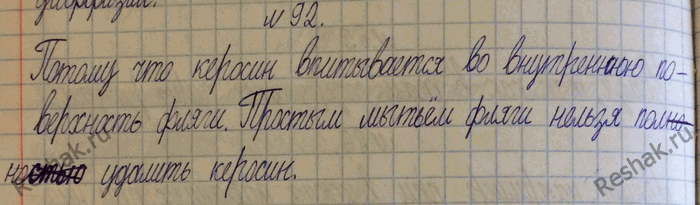 диффузии.
№ 92.
Потому что керосин впитывается во внутреннюю по-
верхность фляги. Простым мытьём фляги нельзя полно-
ностью удалить керосин.
Reshak.ru
Reshak.ru